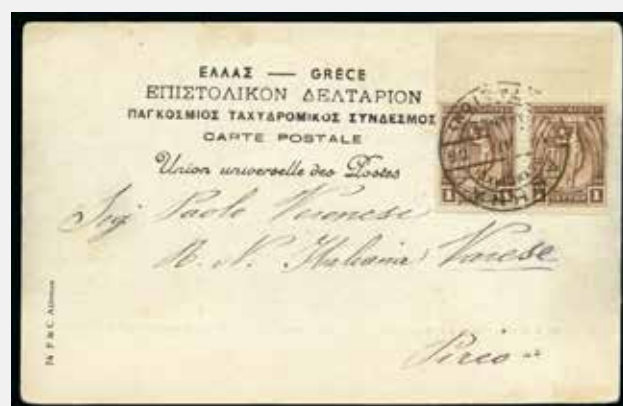 ΕΛΛΑΣ — GRÈCE
ΕΠΙΣΤΟΛΙΚΟΝ ΔΕΛΤΑΡΙΟΝ
ΠΑΓΚΟΣΜΙΟΣ ΤΑΧΥΔΡΟΜΙΚΟΣ ΣΥΝΔΕΣΜΟΣ
CARTE POSTALE
Union universelle des Postes
1 1 1
Sig Paolo Veronese
R. N. Italiana Varese
Pireo